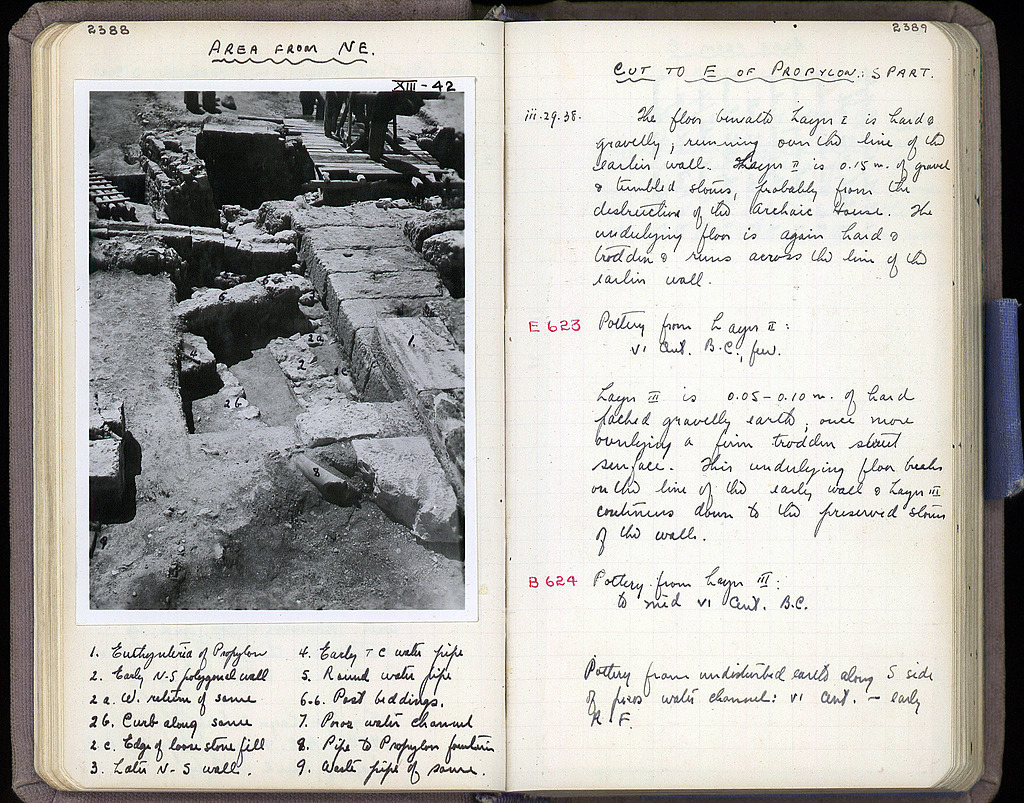 2388
AREA FROM NE.
XIII-42
1. Euthynteria of Propylon
2. Early N-S polygonal wall
2a. W. return of same
2b. Curb along same
2c. Edge of loose stone fill
3. Later N-S wall.
4. Early TC water pipe
5. Round water pipe
6-6. Post beddings.
7. Poros water channel
8. Pipe to Propylon fountain
9. Waste pipe of same.
2389
CUT TO E OF PROPYLON: S PART.
iii.29.38. The floor beneath Layer I is hard &
gravelly, running over the line of the
earlier wall. Layer II is 0.15 m. of gravel
& tumbled stones, probably from the
destruction of the Archaic House. The
underlying floor is again hard &
trodden & runs across the line of the
earlier wall.
E 623 Pottery from Layer II:
VI Cent. B.C., few.
Layer III is 0.05-0.10 m. of hard
packed gravelly earth, once more
overlying a firm trodden street
surface. This underlying floor breaks
on the line of the early wall & Layer III
continues down to the preserved stones
of the wall.
B 624 Pottery from Layer III:
to mid VI Cent. B.C.
Pottery from undisturbed earth along S side
of poros water channel: VI Cent. - early
R.F.
1
2
2a
2b
2c
4
6
7
8
9